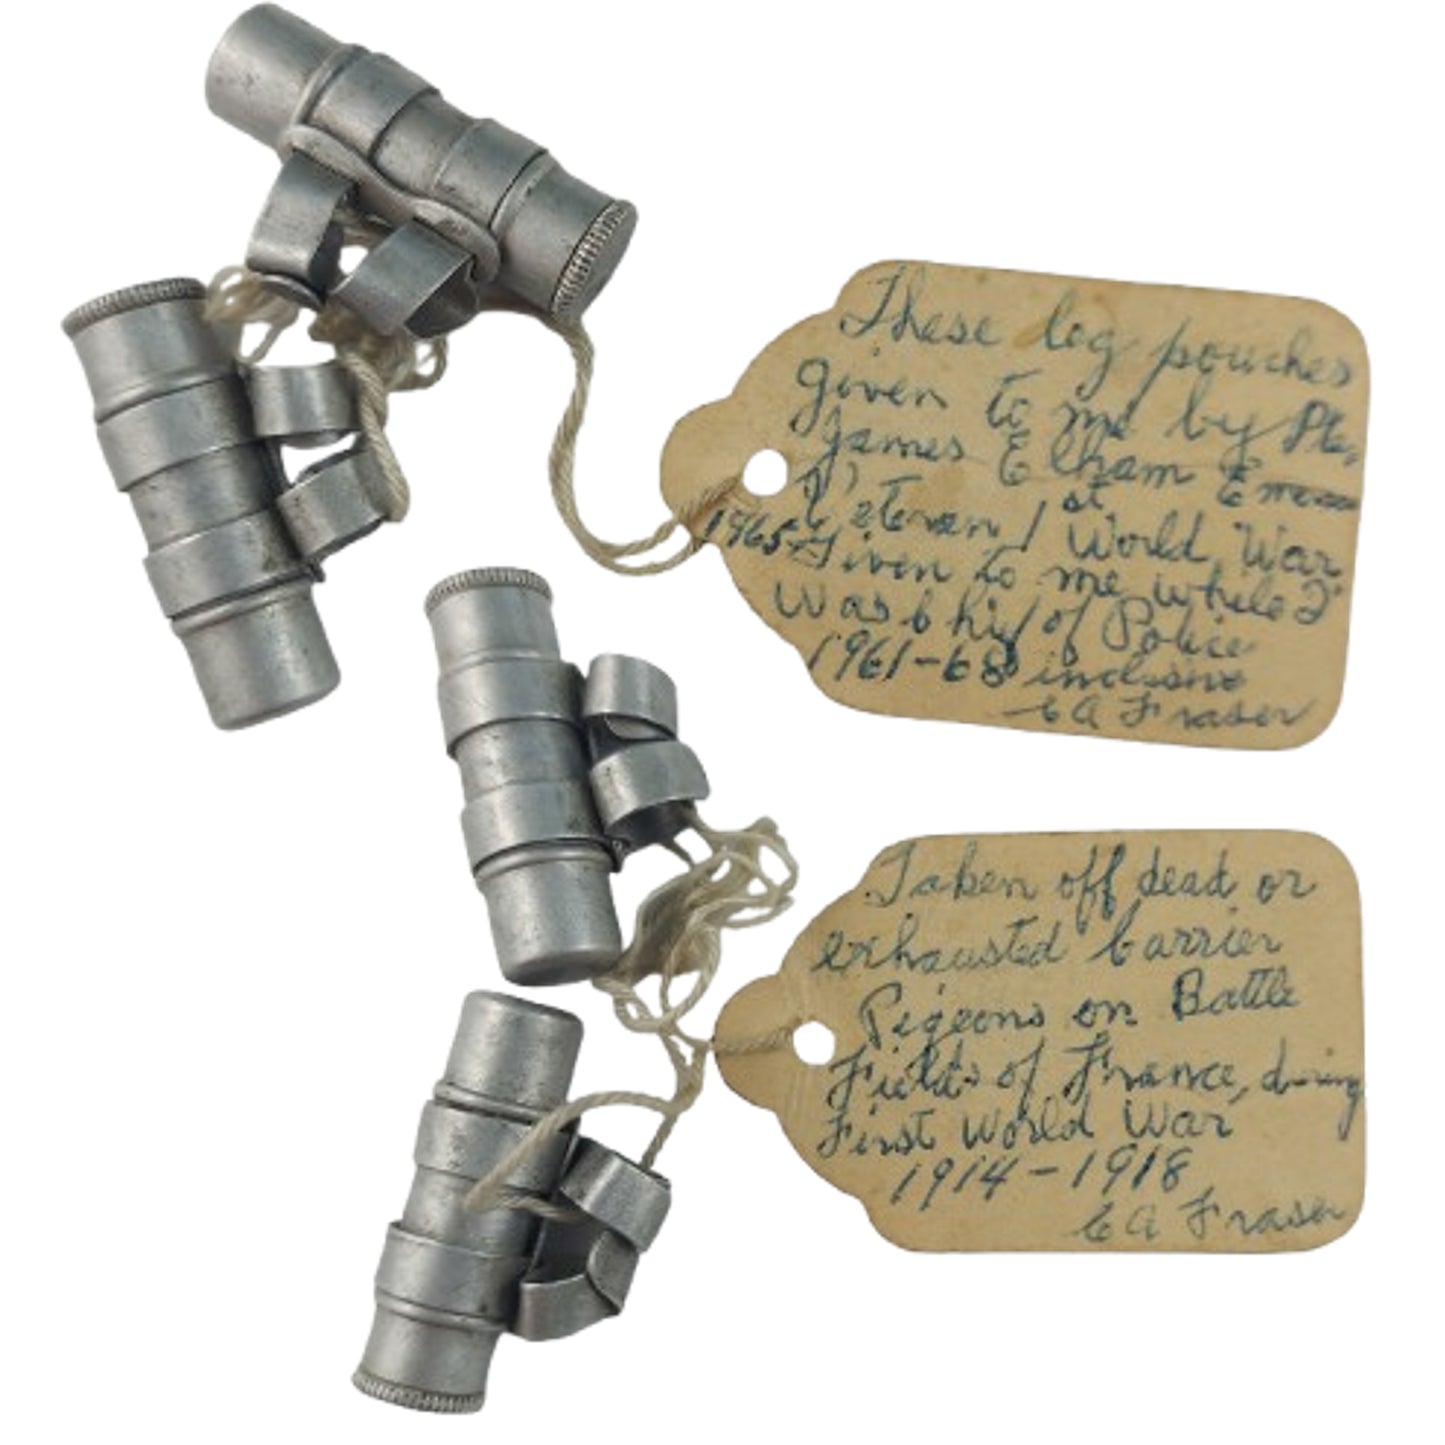 These leg pouches
given to me by Pte.
James Elham
Veteran 1st World War
1965 - Given to me while I
Was Chief of Police
1961-68 inclusive
E A Fraser
Taken off dead or
exhausted Carrier
Pigeons on Battle
Fields of France, during
First World War
1914-1918
E A Fraser